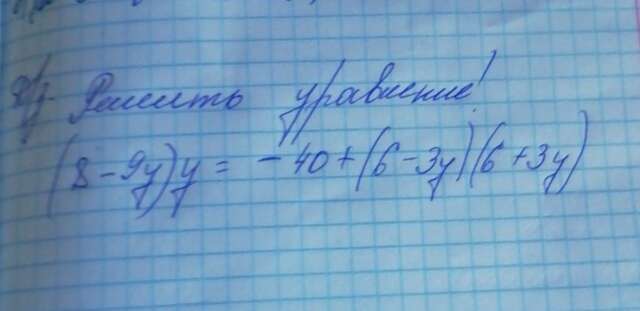 Д/з. Решить уравнение!
(8 - 9y)y = - 40 + (6 - 3y)(6 + 3y)